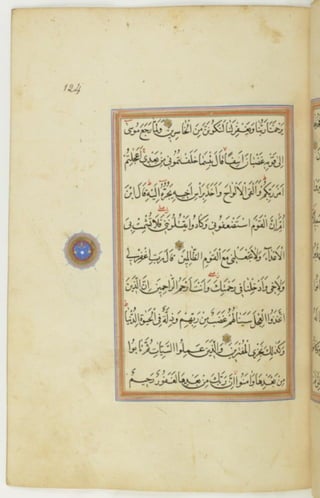 124
يَرْحَمْنَا رَبُّنَا وَيَغْفِرْ لَنَا لَنَكُونَنَّ مِنَ الْخَاسِرِينَ وَلَمَّا رَجَعَ مُوسَى
إِلَى قَوْمِهِ غَضْبَانَ أَسِفًا قَالَ بِئْسَمَا خَلَفْتُمُونِي مِنْ بَعْدِي أَعَجِلْتُمْ
أَمْرَ رَبِّكُمْ وَأَلْقَى الْأَلْوَاحَ وَأَخَذَ بِرَأْسِ أَخِيهِ يَجُرُّهُ إِلَيْهِ قَالَ ابْنَ
أُمَّ إِنَّ الْقَوْمَ اسْتَضْعَفُونِي وَكَادُوا يَقْتُلُونَنِي فَلَا تُشْمِتْ بِيَ
الْأَعْدَاءَ وَلَا تَجْعَلْنِي مَعَ الْقَوْمِ الظَّالِمِينَ قَالَ رَبِّ اغْفِرْ لِي
وَلِأَخِي وَأَدْخِلْنَا فِي رَحْمَتِكَ وَأَنْتَ أَرْحَمُ الرَّاحِمِينَ إِنَّ الَّذِينَ
اتَّخَذُوا الْعِجْلَ سَيَنَالُهُمْ غَضَبٌ مِنْ رَبِّهِمْ وَذِلَّةٌ فِي الْحَيٰوةِ الدُّنْيَا
وَكَذَلِكَ نَجْزِي الْمُفْتَرِينَ وَالَّذِينَ عَمِلُوا السَّيِّئَاتِ ثُمَّ تَابُوا
مِنْ بَعْدِهَا وَآمَنُوا إِنَّ رَبَّكَ مِنْ بَعْدِهَا لَغَفُورٌ رَحِيمٌ